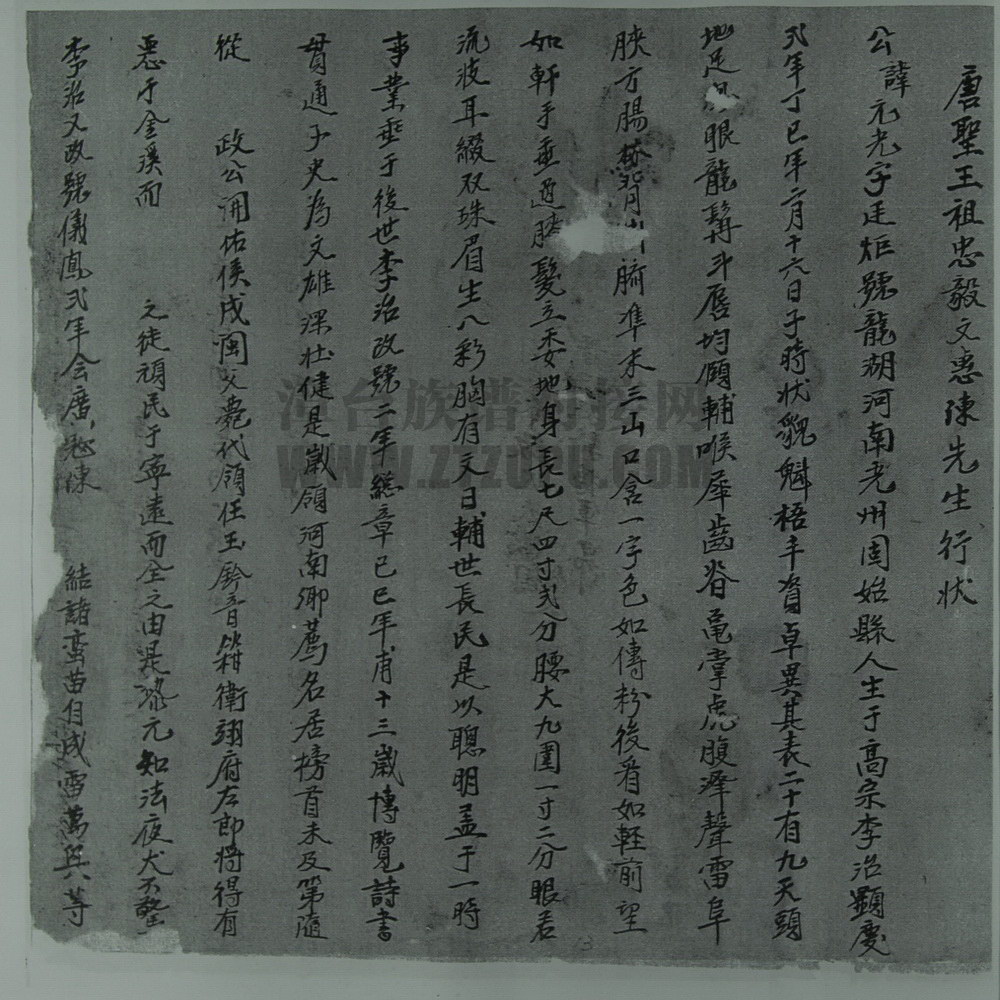 唐聖王祖忠毅文惠陳先生行狀
公諱元光字廷炬號龍湖河南光州固始縣人生于高宗李治顯慶
弍年丁巳年二月十六日子時狀貌魁梧丰資卓異其表二十有九天頭
地足 眼龍髯斗唇均頤輔喉犀齒脊黿掌虎腹澤聲雷阜
胦方腸 背山臍準末三山口含一字色如傅粉後看如軽前望
如軒手垂過膝髮立委地身長七尺四寸弍分腰大九圍一寸二分眼若
流波耳綴双珠眉生八彩胸有文曰輔世長民是以聰明盖于一時
事業垂于後世李治改號二年總章己巳年甫十三歲博覽詩書
貫通子史為文雄深壮健是歲領河南鄉薦名居榜首未及第隨
從 政公開佑侯戍閩父薨代領任玉鈐音 衛翊府左郎將得有
惡于金溪而 之徒頑民于寧遠而全之由是 元知法夜犬不
李治又改號儀鳳弍年会廣 陳 結諸蛮苗自成雷萬興等
河台族谱对接网
WWW.ZTZUPU.COM